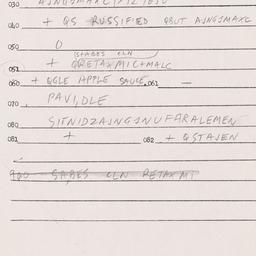 030
040 + QS RUSSIFIED QBUT AJNGJMAXC
050 0
(SABES CLN
051 + QRETAXMIC+MALC
060 + QGLE APPLE SAUCE 061 —
070 PAVI,DLE
080 SITNIDZAJNGJNUFARALEMEN
081 + 082 + QSTAJEN
900 SABES CLN RETAXMI